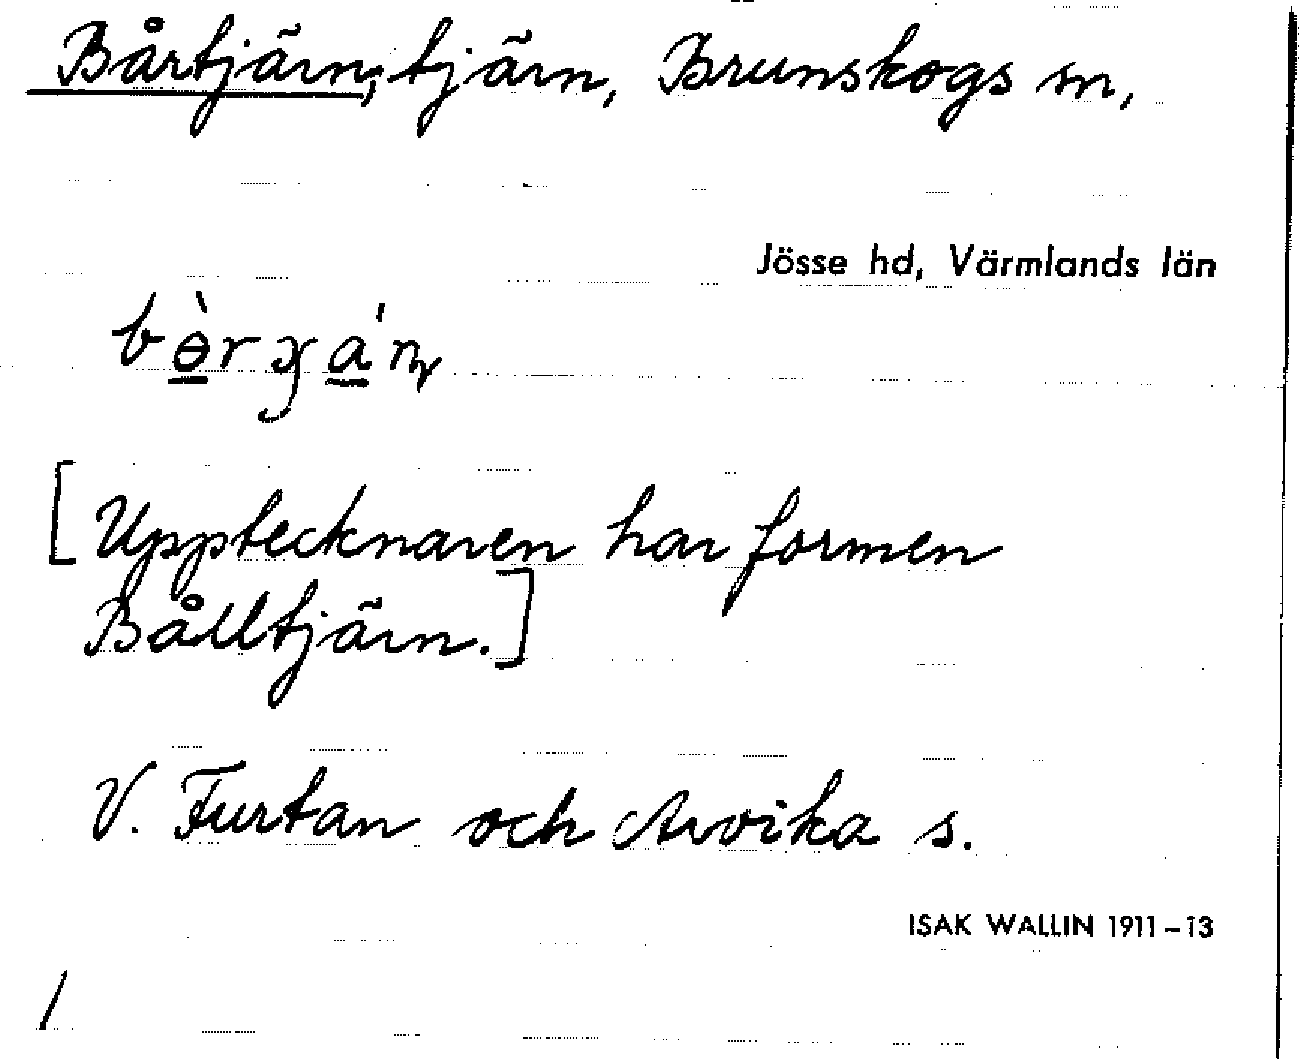 Bårtjärn; tjärn, Brunskogs sn,
Jösse hd, Värmlands län
[Upptecknaren har formen
Bålltjärn.]
V. Furtan och Arvika s.
ISAK WALLIN 1911–13
/